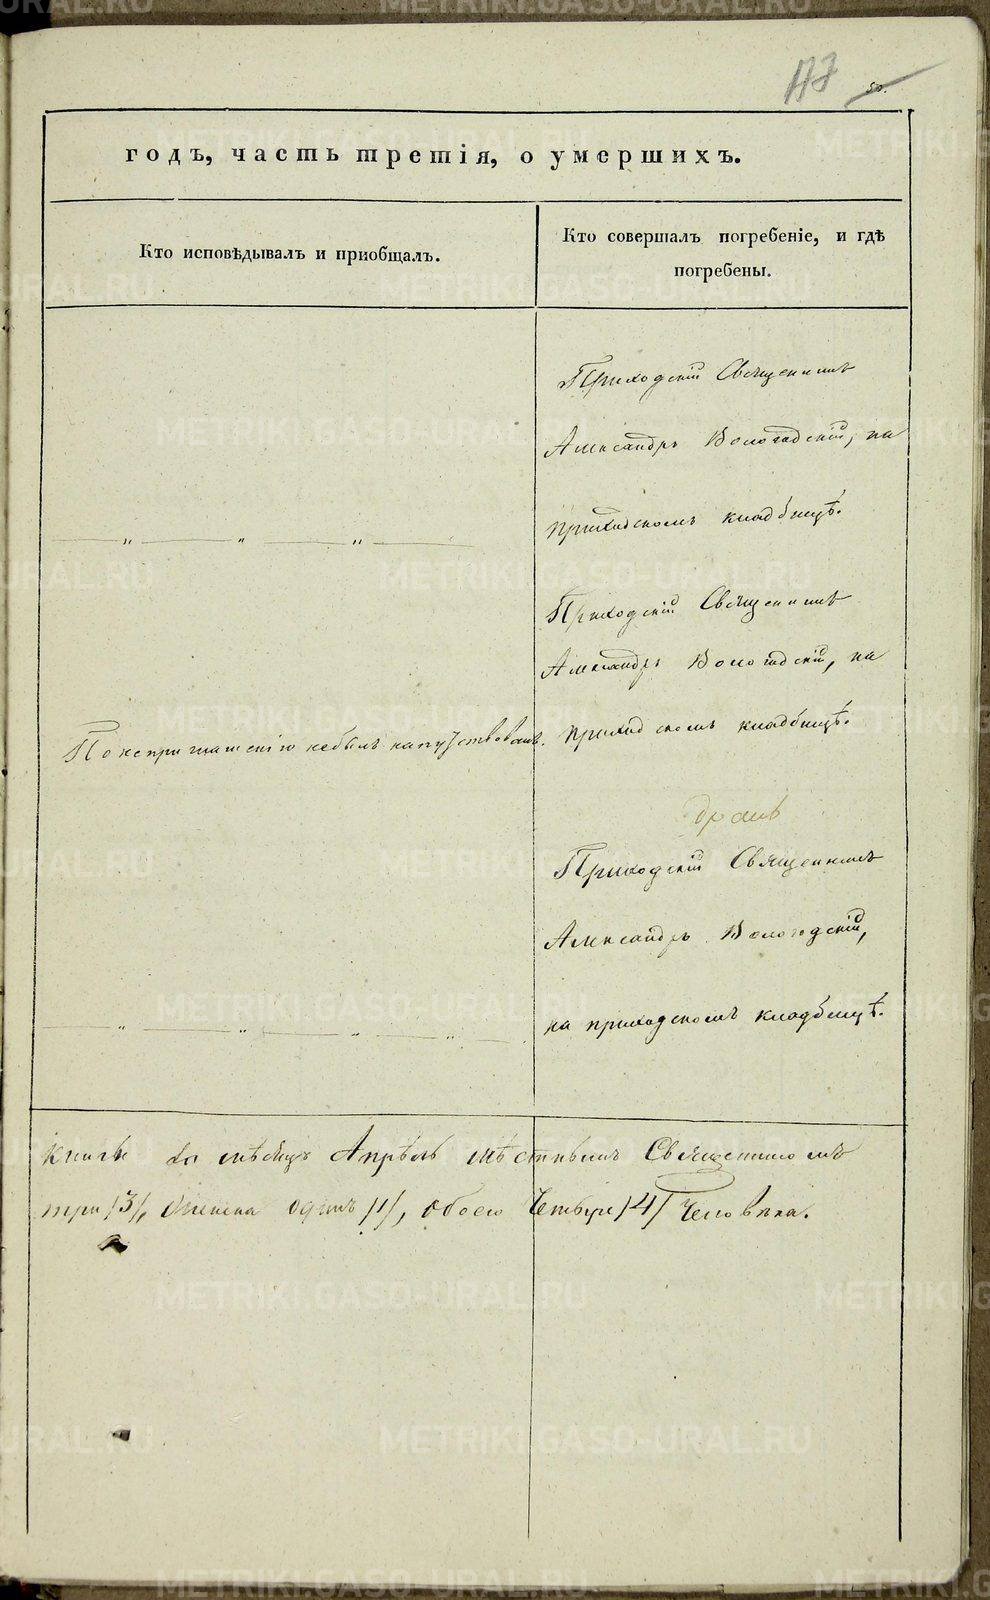 50.
годъ, часть третія, о умершихъ.
Кто исповѣдывалъ и пріобщалъ.
Кто совершалъ погребеніе, и гдѣ
погребены.
Приходскій Священникъ
Александръ Вологодскій, на
приходскомъ кладбищѣ.
Приходскій Священникъ
Александръ Вологодскій, на
По неприглашенію небылъ напутствованъ.
приходскомъ кладбищѣ.
Приходскій Священникъ
Александръ Вологодскій,
на приходскомъ кладбищѣ.
книгѣ за мѣсяцъ Апрѣль мѣстнымъ Священникомъ
три /3/, женска одинъ /1/, обоего Четыре /4/ Человѣка.
METRIKI.GASO-URAL.RU